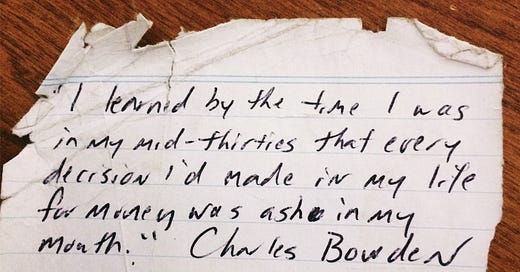 "I learned by the time I was
in my mid-thirties that every
decision I'd made in my life
for money was ash in my
mouth." Charles Bowden